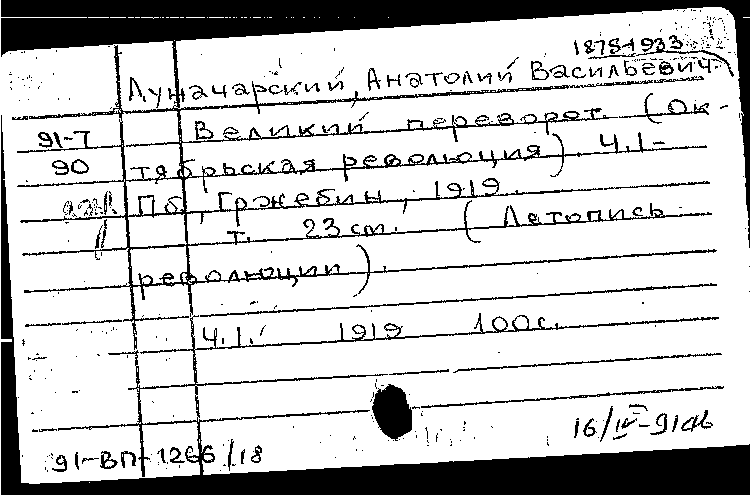 1875-1933
Луначарский, Анатолий Васильевич.
91-7 Великий переворот. (Ок-
90 тябрьская революция). Ч.1-
Пб., Гржебин, 1919.
т. 23 см. (Летопись
революции).
Ч.1. 1919 100с.
16/IV-91
91-ВП-1266/18